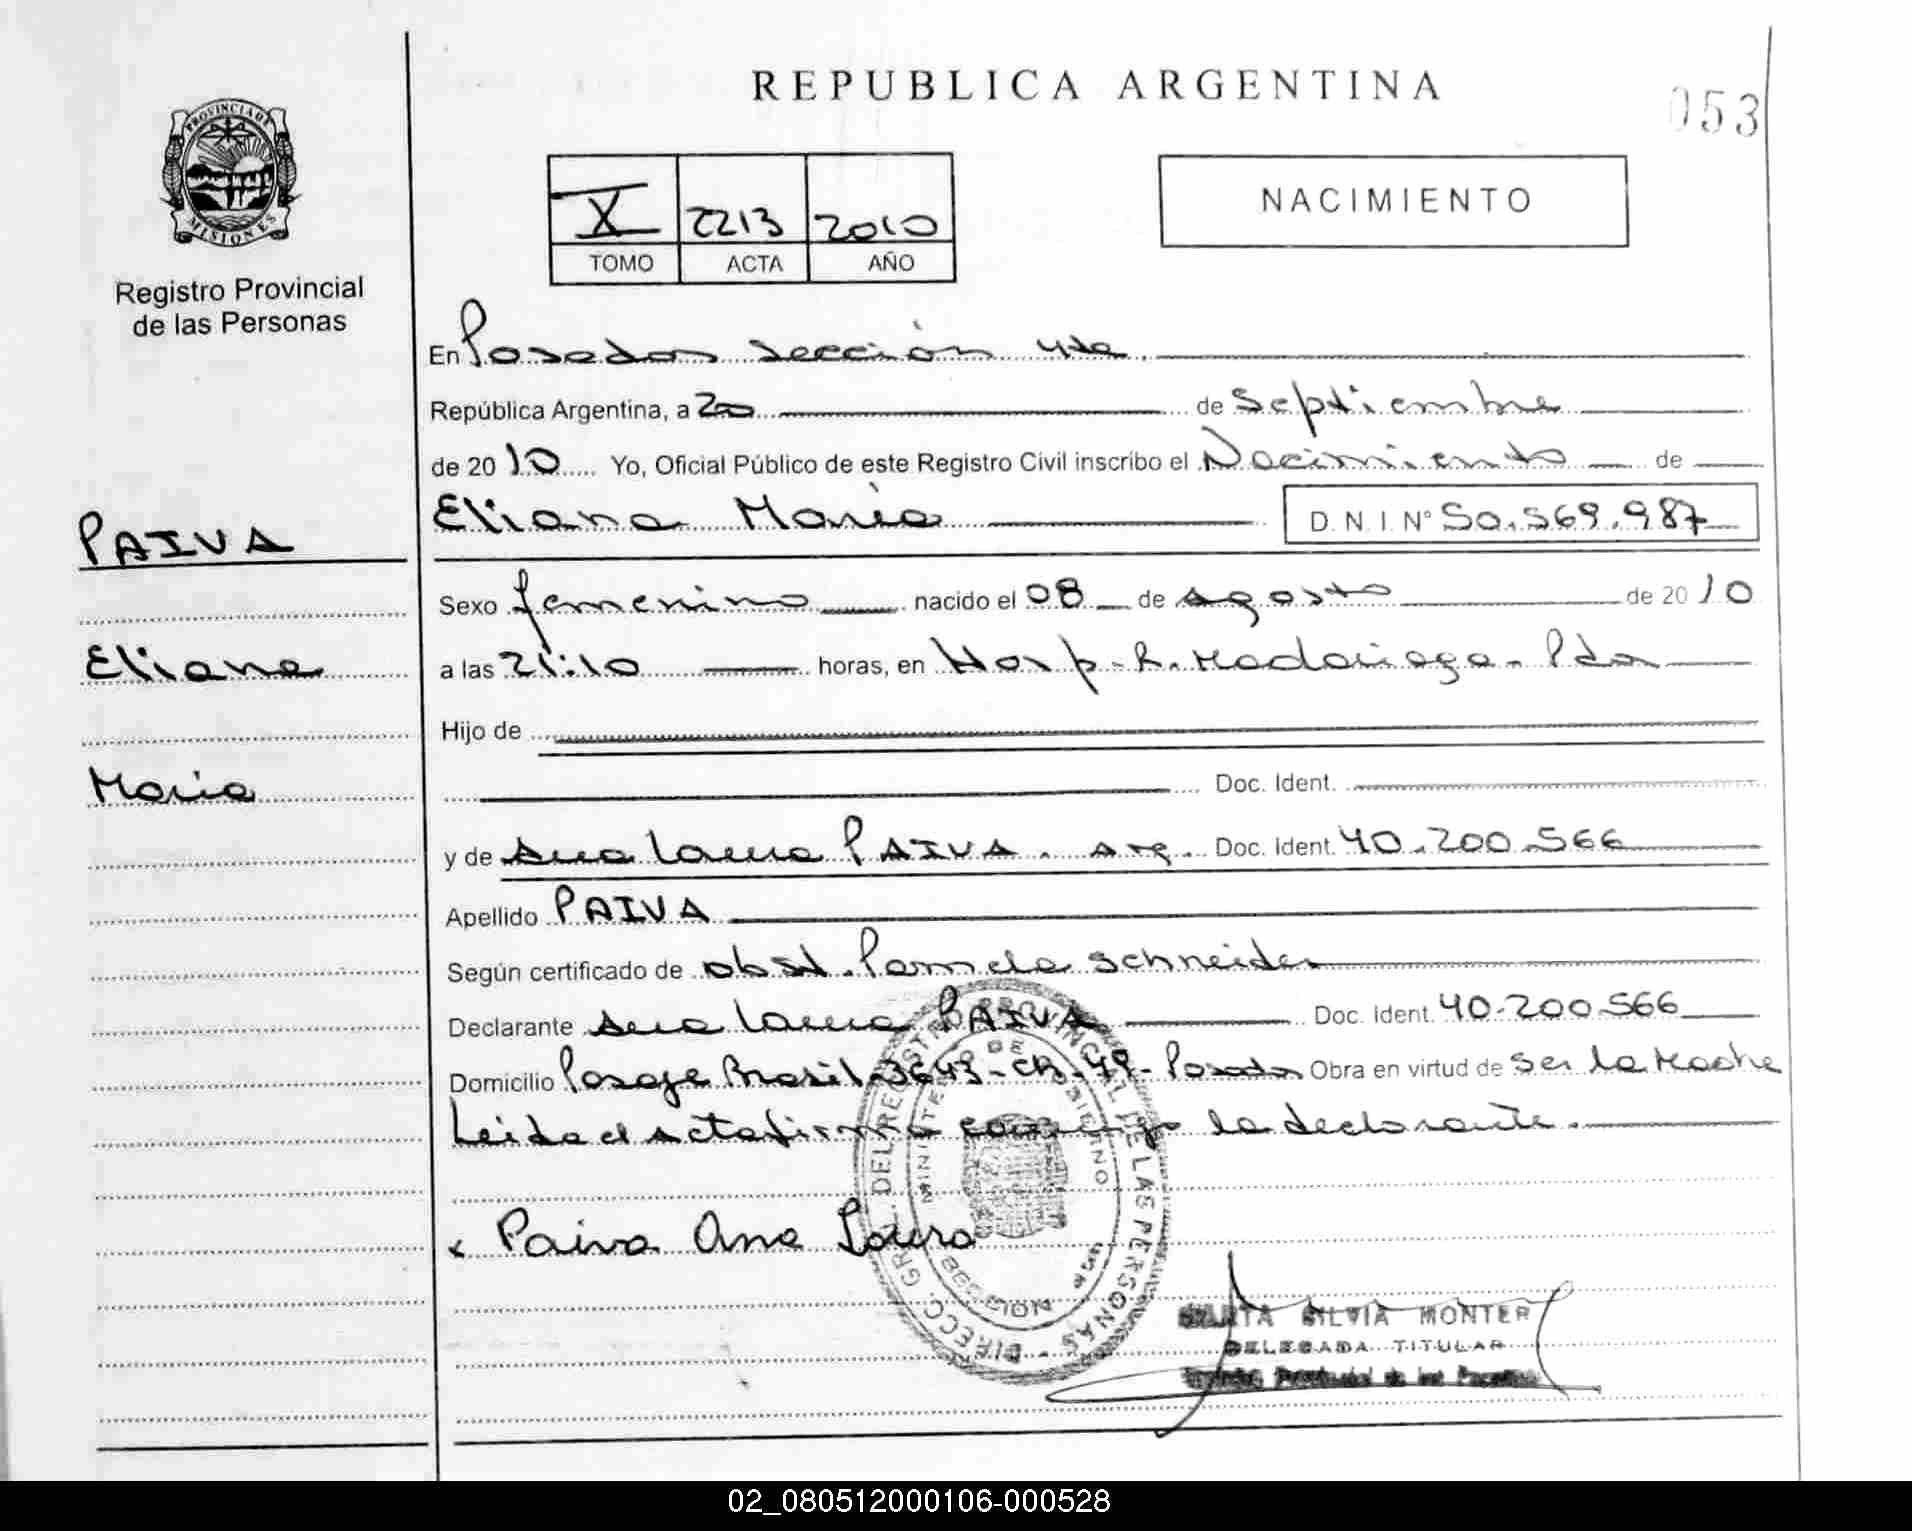 REPUBLICA ARGENTINA
053
PROVINCIA DE
MISIONES
Registro Provincial
de las Personas
X 2213 2010
TOMO ACTA AÑO
NACIMIENTO
En Posadas sección 4ta
República Argentina, a 20 de Septiembre
de 2010 Yo, Oficial Público de este Registro Civil inscribo el Nacimiento de
Eliana Maria D.N.I. Nº 50.569.987
PAIVA
Eliana
Maria
Sexo femenino nacido el 08 de agosto de 2010
a las 21:10 horas, en Hosp. R. Madariaga - Pdas
Hijo de
Doc. Ident.
y de Ana Laura PAIVA. arg. Doc. Ident. 40.200.566
Apellido PAIVA
Según certificado de obst. Pamela Schneider
Declarante Ana Laura PAIVA Doc. Ident. 40.200.566
Domicilio Pasaje Brasil 3643 - Ch. 49 - Posadas Obra en virtud de ser la Madre
Leida el acta firma conmigo la declarante.
x Paiva Ana Laura
DIRECC. GRAL. DEL REGISTRO PROVINCIAL DE LAS PERSONAS
MINISTERIO DE GOBIERNO
MARTA SILVIA MONTER
DELEGADA TITULAR
Registro Provincial de las Personas
02_080512000106-000528